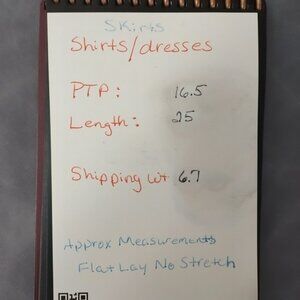 Skirts
Shirts/dresses
PTP: 16.5
Length: 25
Shipping Wt 6.7
Approx Measurements
Flat Lay No Stretch